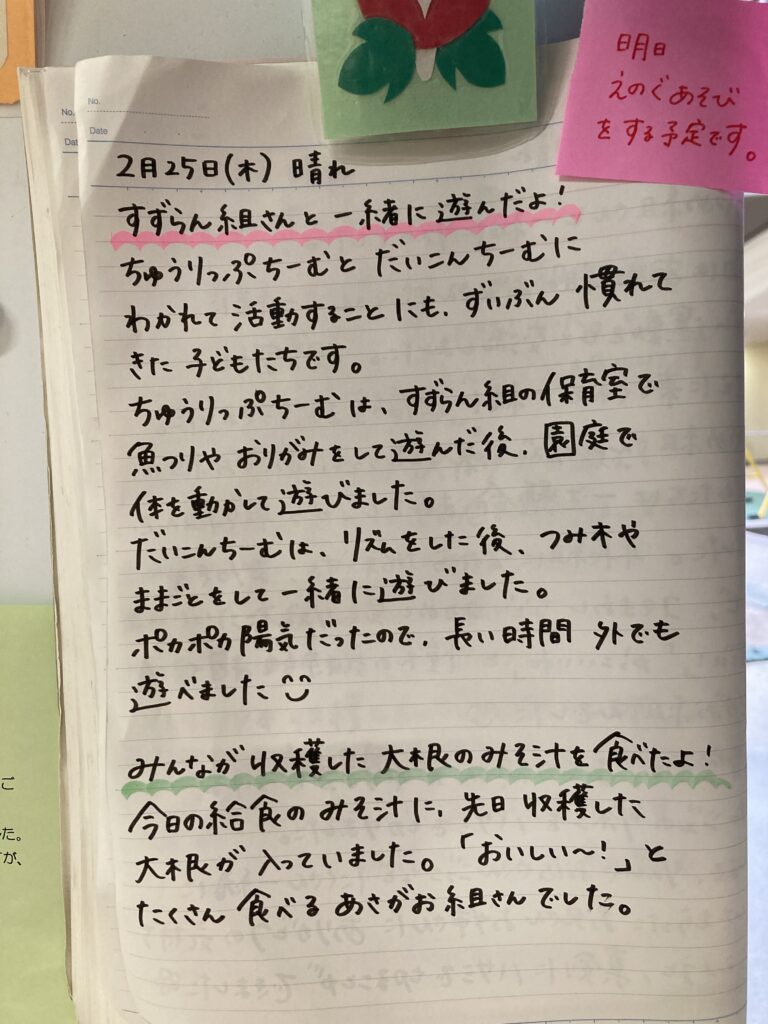 明日
えのぐあそび
をする予定です。
No.
No.
Date
Dat
2月25日(木) 晴れ
すずらん組さんと一緒に遊んだよ!
ちゅうりっぷちーむと だいこんちーむに
わかれて活動することにも、ずいぶん 慣れて
きた 子どもたちです。
ちゅうりっぷちーむは、すずらん組の保育室で
魚つりや おりがみをして遊んだ後、園庭で
体を動かして遊びました。
だいこんちーむは、リズムをした後、つみ木や
ままごとをして一緒に遊びました。
ポカポカ陽気だったので、長い時間 外でも
遊べました
みんなが収穫した 大根のみそ汁を食べたよ!
今日の給食の みそ汁に、先日 収穫した
大根が 入っていました。「おいしい〜!」と
たくさん 食べる あさがお組さんでした。
ご
た。
が、